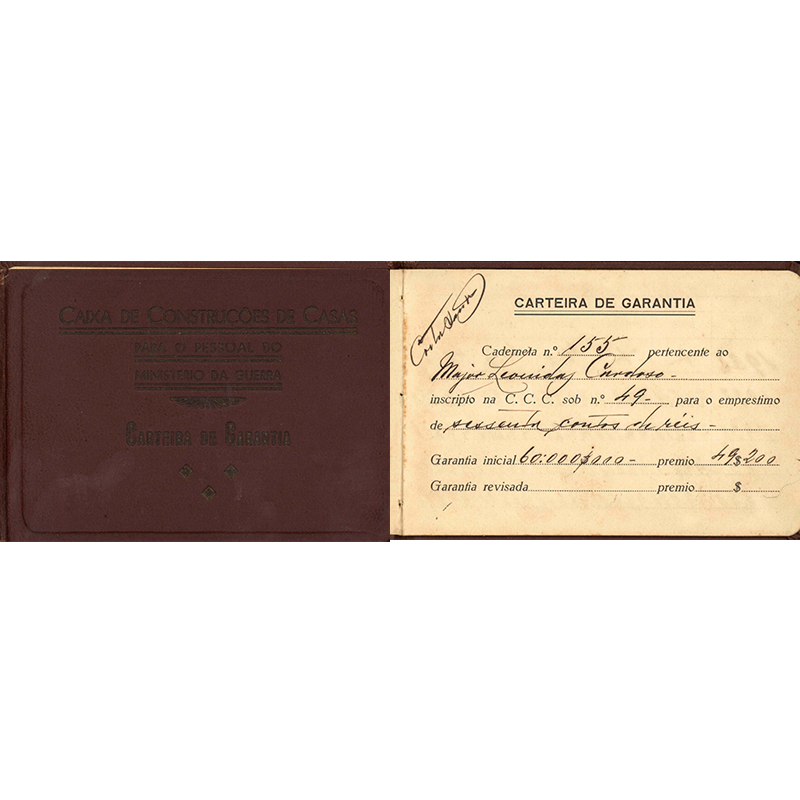 CAIXA DE CONSTRUCÇÕES DE CASAS
PARA O PESSOAL DO
MINISTERIO DA GUERRA
CARTEIRA DE GARANTIA
CARTEIRA DE GARANTIA
Caderneta n.º 155 pertencente ao
Major Leonidas Cardoso -
inscripto na C. C. C. sob n.º 49 - para o emprestimo
de sessenta contos de réis -
Garantia inicial 60:000$000 - premio 49$200
Garantia revisada premio $